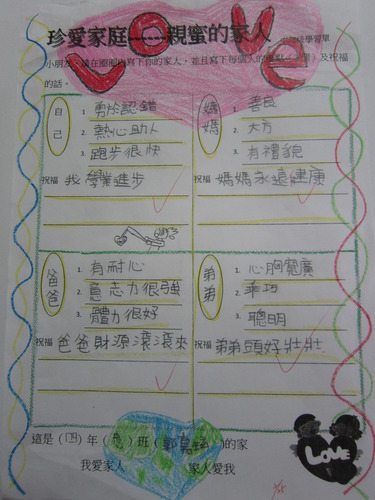 LOVE
珍愛家庭------親蜜的家人
學習單
小朋友，請在圈圈內寫下你的家人，並且寫下每個人的優點
及祝福
的話。
自己
1. 勇於認錯
2. 熱心助人
3. 跑步很快
祝福 我 學業進步
媽媽
1. 善良
2. 大方
3. 有禮貌
祝福 媽媽永遠健康
爸爸
1. 有耐心
2. 意志力很強
3. 體力很好
祝福 爸爸財源滾滾來
弟弟
1. 心胸寬廣
2. 乖巧
3. 聰明
祝福 弟弟頭好壯壯
這是（四）年（ ）班（ ）的家
我愛家人 家人愛我
LOVE